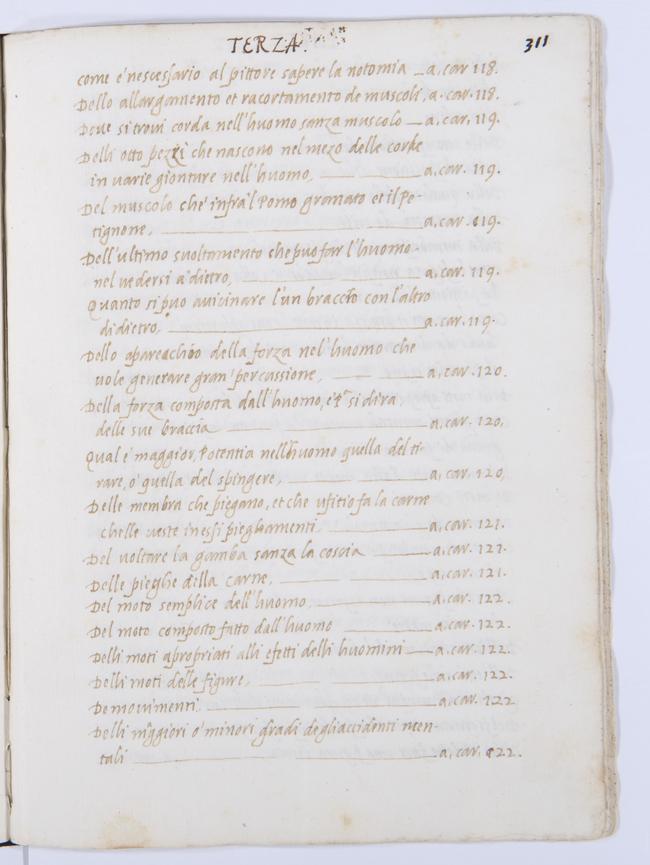 TERZA.
311
come e' nescessario al pittore sapere la notomia a, car 118.
Dello allargamento et racortamento de muscoli, a. car. 118.
Dove si trovi corda nell'huomo sanza muscolo a, car. 119.
Delli otto pezzi che nascono nel mezo delle corde
in varie gionture nell'huomo, a, car. 119.
Del muscolo che' infra'l Pomo granato et il Pe-
tignone, a, car. 119.
Dell'ultimo svoltamento che puo far l'huomo
nel vedersi a' dietro, a, car. 119.
Quanto si puo avicinare l'un braccio con l'altro
di dietro, a. car. 119.
Dello apareachio della forza nel'huomo che
vole generare gran' percussione, a, car. 120.
Della forza composta dall'huomo, et si dira,
delle sue braccia a, car. 120,
Qual e' maggior, Potentia nell'huomo quella del ti-
rare, o' quella del spingere, a, car. 120,
Delle membra che piegano, et che ufitio fa la carne
chelle veste in essi pieghamenti, a, car. 121.
Del voltare la gamba sanza la coscia a, car. 121.
Delle pieghe della carne, a, car. 121.
Del moto semplice dell'huomo, a, car. 122.
Del moto composto fatto dall'huomo a, car. 122.
Delli moti apropriati alli efetti delli huomini a, car. 122.
Delli moti delle figure, a, car. 122.
De movimenti, a, car. 122
Delli maggiori o' minori gradi degli accidenti men-
tali a, car. 122.